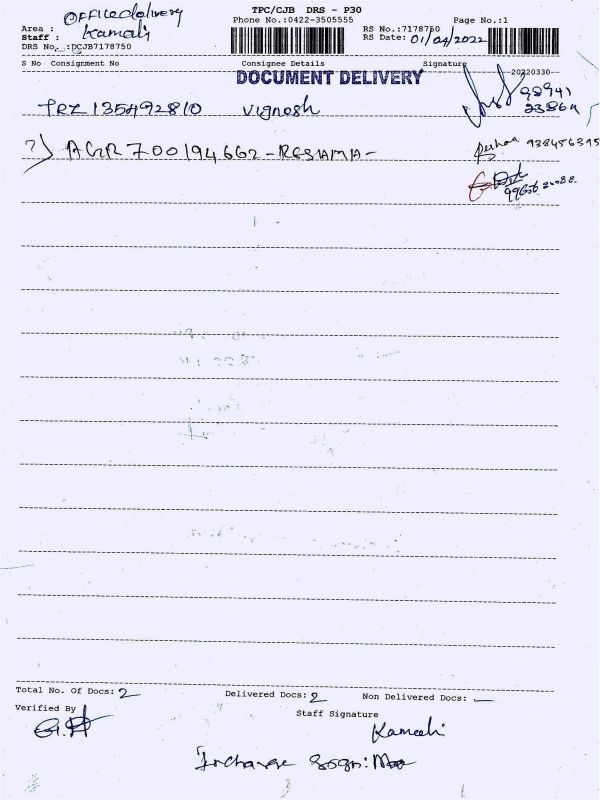 TPC/CJB DRS - P30
Office delivery Phone No.:0422-3505555 Page No.:1
Area : RS No.:7178750
Staff : Kamali RS Date: 01/04/2022
DRS No. :DCJB7178750
S No Consignment No Consignee Details Signature
DOCUMENT DELIVERY 20220330
TRZ 135492810 Vignesh 98941
23864
2) AGR 700194662 - RESHMA - 938456395
Total No. Of Docs: 2 Delivered Docs: 2 Non Delivered Docs: —
Verified By Staff Signature
Kamali
Incharge Sign: